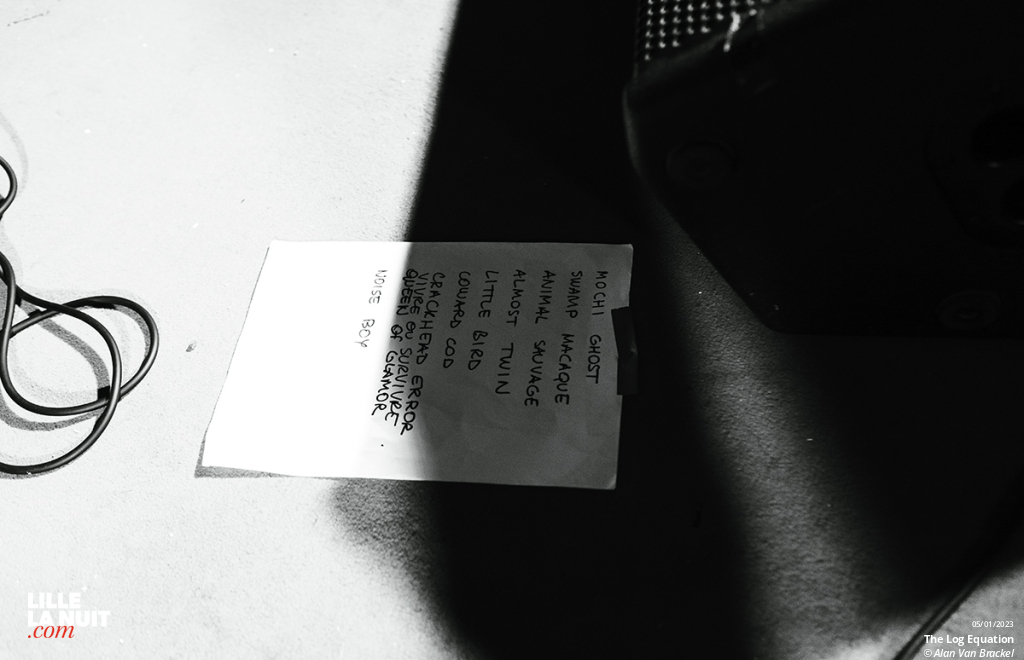 MOCHI GHOST
SWAMP MACAQUE
ANIMAL SAUVAGE
ALMOST TWIN
LITTLE BIRD
COWARD COD
CRACKHEAD ERROR
VIVRE OU SURVIVRE
QUEEN OF GLAMOR
NOISE BOY
LILLE
LA NUIT
.com
05/01/2023
The Log Equation
© Alan Van Brackel